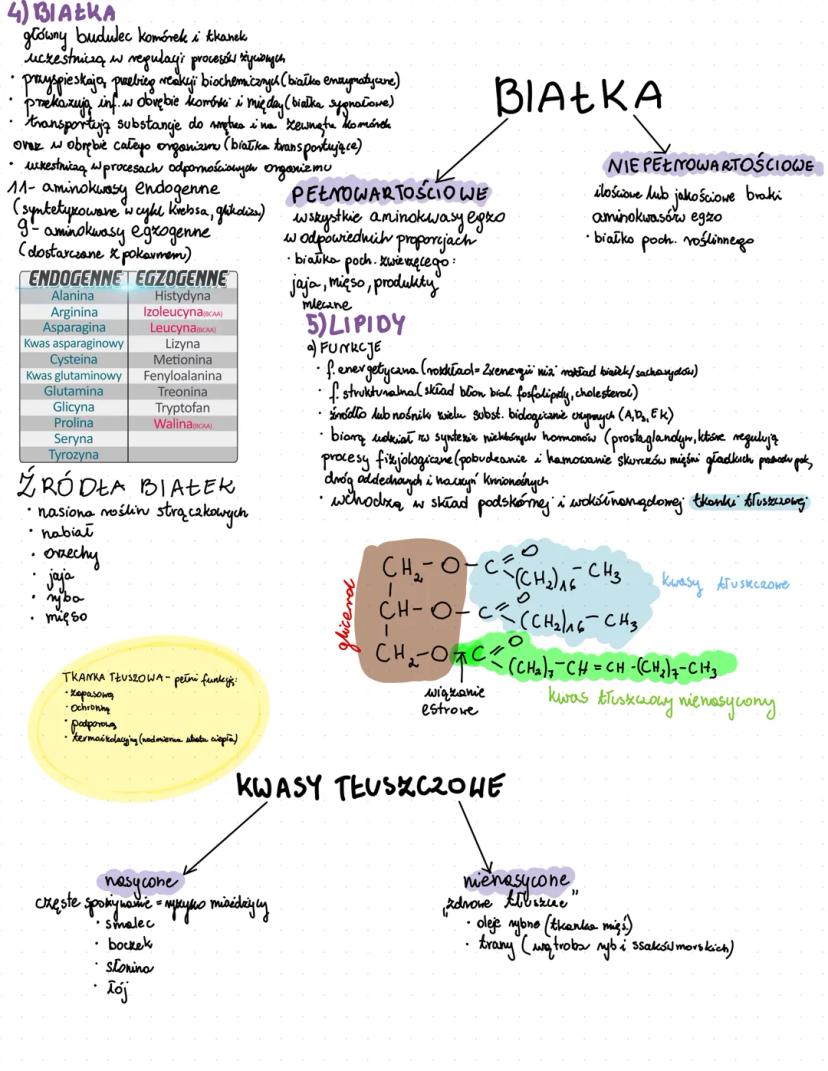 4) BIAŁKA
główny budulec komórek i tkanek
uczestniczą w regulacji procesów życiowych
· przyspieszają przebieg reakcji biochemicznych (białka enzymatyczne)
· przekazują inf. w obrębie komórki i między (białka sygnałowe)
· transportują substancje do wnętrza i na zewnątrz komórek
oraz w obrębie całego organizmu (białka transportujące)
· uczestniczą w procesach odpornościowych organizmu
11- aminokwasy endogenne
(syntetyzowane w cyklu krebsa, glikolizie)
9- aminokwasy egzogenne
(dostarczane z pokarmem)
ENDOGENNE EGZOGENNE
Alanina Histydyna
Arginina Izoleucyna(BCAA)
Asparagina Leucyna(BCAA)
Kwas asparaginowy Lizyna
Cysteina Metionina
Kwas glutaminowy Fenyloalanina
Glutamina Treonina
Glicyna Tryptofan
Prolina Walina(BCAA)
Seryna
Tyrozyna
ŹRÓDŁA BIAŁEK
· nasiona roślin strączkowych
· nabiał
· orzechy
· jaja
· ryba
· mięso
BIAŁKA
PEŁNOWARTOŚCIOWE
wszystkie aminokwasy egzo
w odpowiednich proporcjach
· białka poch. zwierzęcego:
jaja, mięso, produkty
mleczne
NIEPEŁNOWARTOŚCIOWE
ilościowe lub jakościowe braki
aminokwasów egzo
· białka poch. roślinnego
5) LIPIDY
a) FUNKCJE
· f. energetyczna (rozkład = 2x energii niż rozkład białek/sacharydów)
· f. strukturalna (skład błon biol. fosfolipidy, cholesterol)
· źródło lub nośnik wielu subst. biologicznie czynnych (A, D₃, E K)
· biorą udział w syntezie niektórych hormonów (prostaglandyn, które regulują
procesy fizjologiczne (pobudzanie i hamowanie skurczów mięśni gładkich przewodu pok,
dróg oddechowych i naczyń krwionośnych
· wchodzą w skład podskórnej i wokółnarządowej tkanki tłuszczowej
glicerol
CH₂-O-C=O (CH₂)₁₆-CH₃
CH-O-C=O (CH₂)₁₆-CH₃
CH₂-O-C=O (CH₂)₇-CH=CH-(CH₂)₇-CH₃
kwasy tłuszczowe
wiązanie
estrowe
kwas tłuszczowy nienasycony
TKANKA TŁUSZOWA - pełni funkcję:
· zapasową
· ochronną
· podporową
· termoizolacyjną (nadmierna utrata ciepła)
KWASY TŁUSZCZOWE
nasycone
częste spożywanie = ryzyko miażdżycy
· smalec
· boczek
· słonina
· łój
nienasycone
„zdrowe tłuszcze"
· oleje rybne (tkanka mięś.)
· trany (wątroba ryb i ssaków morskich)